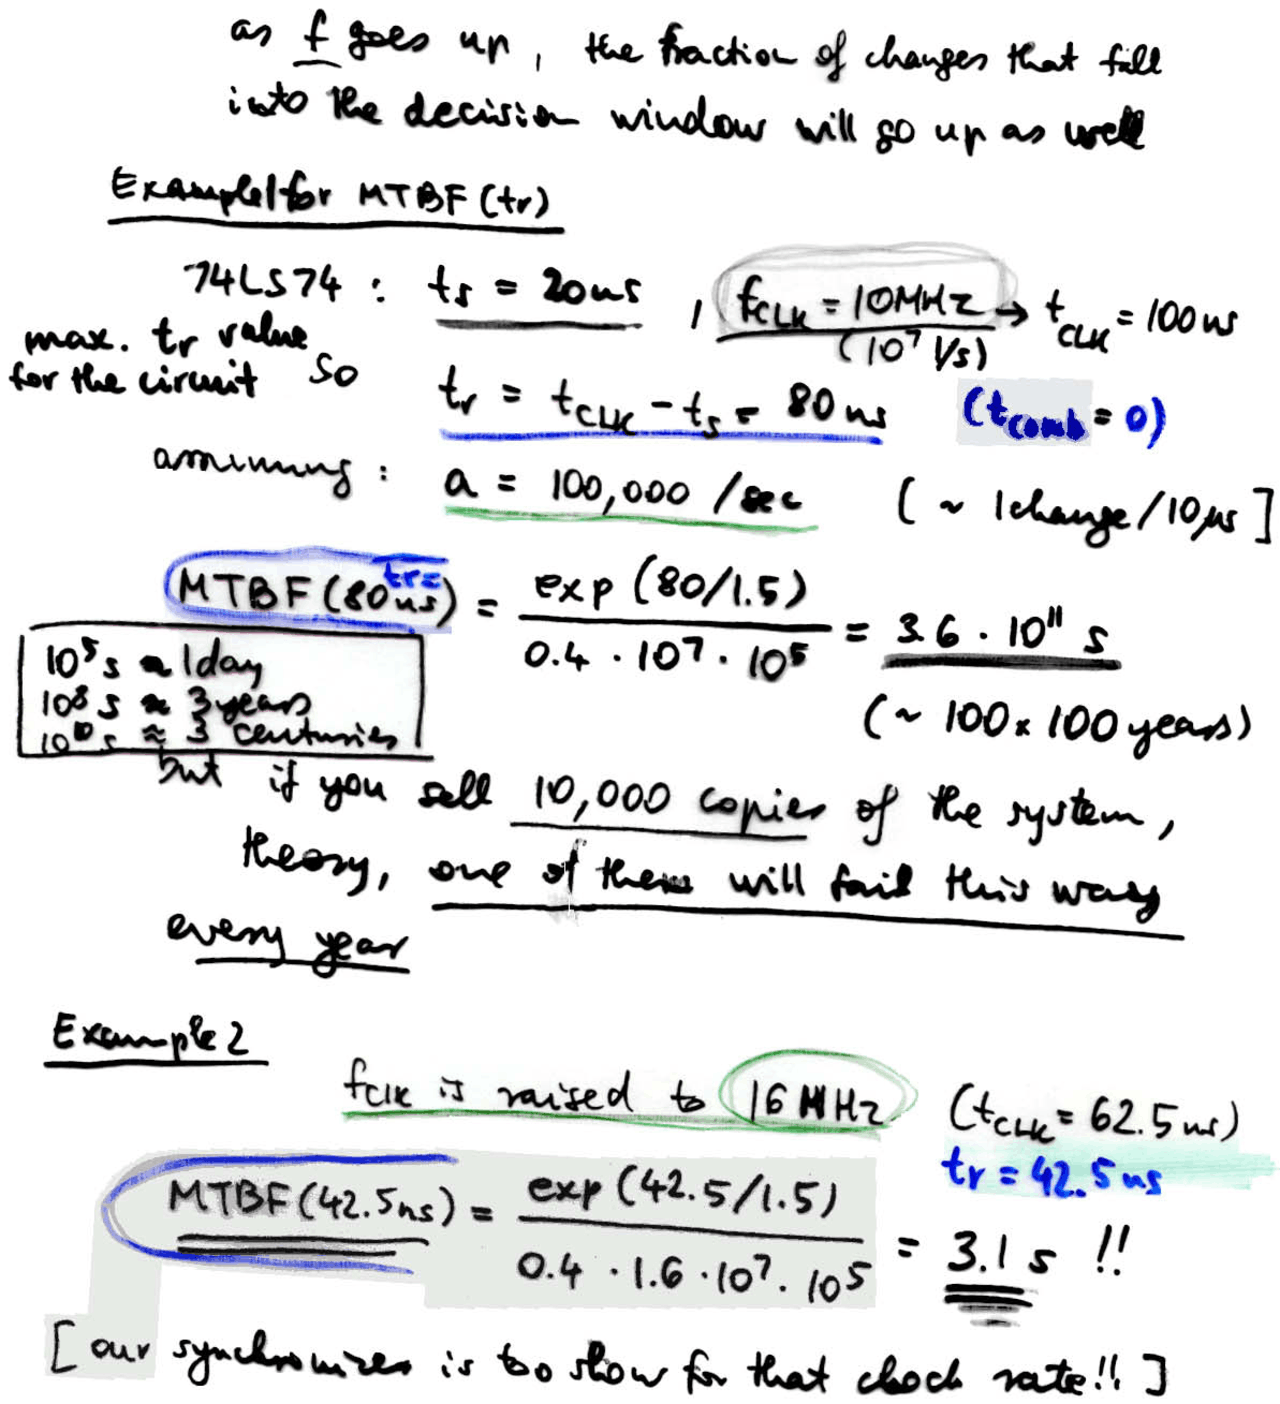 as f goes up, the fraction of changes that fall
into the decision window will go up as well
Example1 for MTBF (tr)
74LS74 : ts = 20ns , fCLK = 10MHz → tCLK = 100ns
(10^7 1/s)
max. tr value
for the circuit so tr = tCLK - ts = 80 ns (tcomb = 0)
assuming : a = 100,000 /sec [ ~ 1change/10µs ]
MTBF (tr= 80ns) = exp (80/1.5) / 0.4 · 10^7 · 10^5 = 3.6 · 10^11 s
10^5 s ≈ 1day
10^8 s ≈ 3years
10^10 s ≈ 3 centuries
(~ 100 x 100 years)
but if you sell 10,000 copies of the system,
theory, one of them will fail this way
every year
Example 2
fCLK is raised to 16 MHz (tCLK = 62.5 ns)
tr = 42.5 ns
MTBF(42.5ns) = exp (42.5/1.5) / 0.4 · 1.6 · 10^7 · 10^5 = 3.1 s !!
[ our synchronizer is too slow for that clock rate!! ]